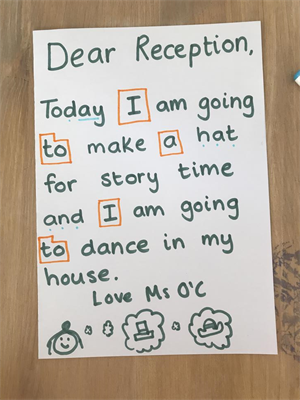 Dear Reception,
Today I am going
to make a hat
for story time
and I am going
to dance in my
house.
Love Ms O'C